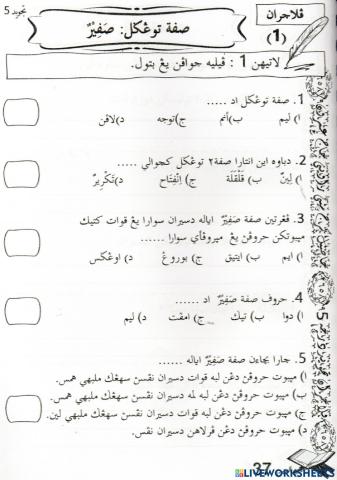 تجويد 5
ڤلاجران
(1)
صفة توڠݢل: صَفِيْرٌ
لاتيهن 1 : ڤيليه جوابن يڠ بتول.
1. صفة توڠݢل اد ......
ا) ليم ب) انم ج) توجه د) لاڤن
2. دباوه اين انتارا صفة٢ توڠݢل كچوالي ......
ا) لِينٌ ب) قَلْقَلَة ج) اِنْفِتَاح د) تَكْرِيرٌ
3. ڤڠرتين صفة صَفِيْرٌ اياله دسيران سوارا يڠ قوات كتيك
مڽبوتكن حروفن يڠ ميروڤاي سوارا ......
ا) ايم ب) ايتيق ج) بوروڠ د) اوڠكس
4. حروف صفة صَفِيْرٌ اد ......
ا) دوا ب) تيݢ ج) امڤت د) ليم
5. چارا بچاءن صفة صَفِيْرٌ اياله ......
ا) مڽبوت حروفن دڠن لبه قوات دسيران نفسن سهڠݢ ملبيهي همس.
ب) مڽبوت حروفن دڠن لبه لمه دسيران نفسن سهڠݢ ملبيهي همس.
ج) مڽبوت حروفن دڠن لبه قوات دسيران نفسن سهڠݢ ملبيهي لين.
د) مڽبوت حروفن دڠن ڤرلاهن دسيران نفس.
37
LIVEWORKSHEETS